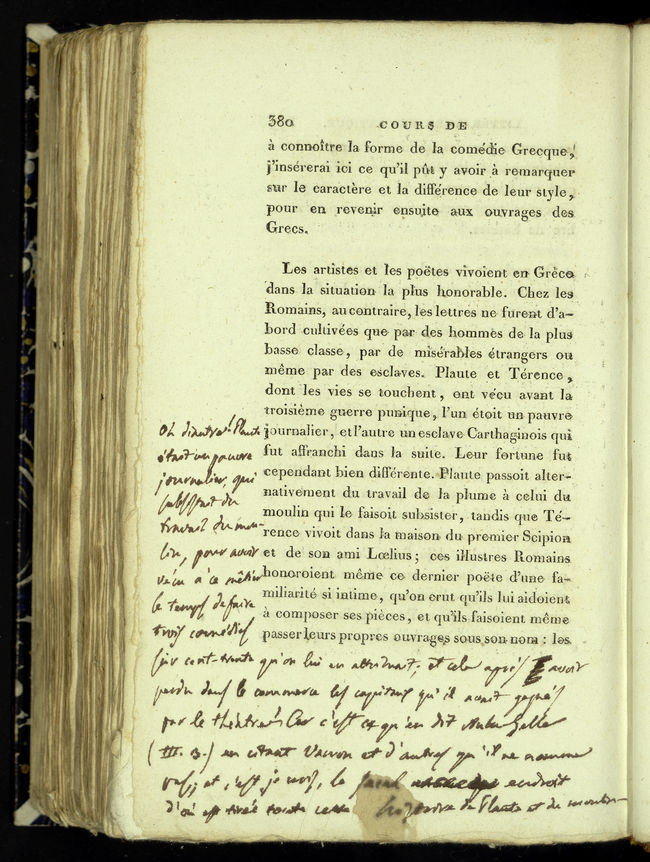 380
COURS DE
à connoître la forme de la comédie Grecque,
j'insérerai ici ce qu'il pût y avoir à remarquer
sur le caractère et la différence de leur style,
pour en revenir ensuite aux ouvrages des
Grecs.
Les artistes et les poëtes vivoient en Grèce
dans la situation la plus honorable. Chez les
Romains, au contraire, les lettres ne furent d'a-
bord cultivées que par des hommes de la plus
basse classe, par de misérables étrangers ou
même par des esclaves. Plaute et Térence,
dont les vies se touchent, ont vécu avant la
troisième guerre punique, l'un étoit un pauvre
journalier, et l'autre un esclave Carthaginois qui
fut affranchi dans la suite. Leur fortune fut
cependant bien différente. Plaute passoit alter-
nativement du travail de la plume à celui du
moulin qui le faisoit subsister, tandis que Té-
rence vivoit dans la maison du premier Scipion
et de son ami Lœlius; ces illustres Romains
honoroient même ce dernier poëte d'une fa-
miliarité si intime, qu'on crut qu'ils lui aidoient
à composer ses pièces, et qu'ils faisoient même
passer leurs propres ouvrages sous son nom : les
Oh diantre! Plaute
était un pauvre
journalier, qui
subsistait du
travail du mou-
lin, pour avoir
vécu à ce métier
le temps de faire
trois comédies
sur cent-trente qu'on lui en attribuait; et cela après avoir
perdu dans le commerce les capitaux qu'il avait gagnés
par le théâtre! Car c'est ce qu'en dit Aulu Gelle
(III. 3.) en citant Varron et d'autres qu'il ne nomme
pas; et c'est, je crois, le seul endroit
d'où est tirée toute cette histoire de Plaute et du moulin